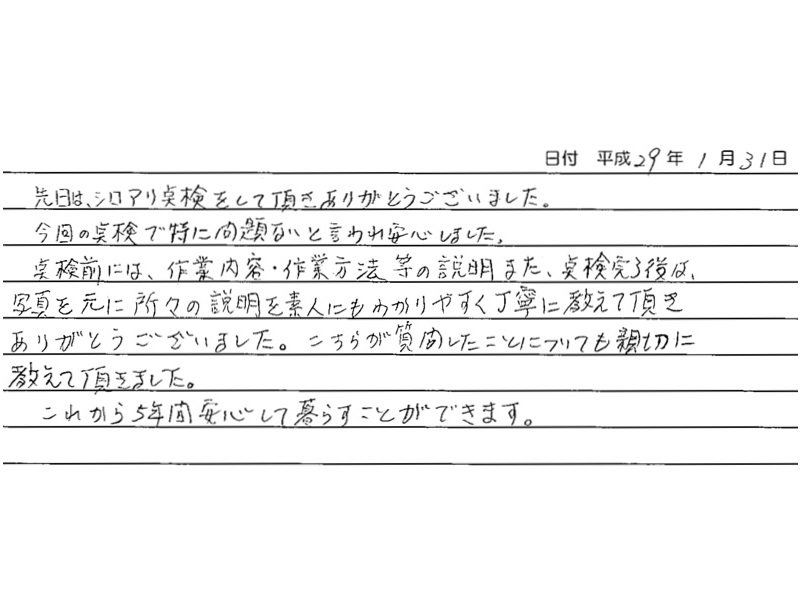 日付 平成29年 1月31日
先日は、シロアリ点検をして頂きありがとうございました。
今回の点検で特に問題ないと言われ安心しました。
点検前には、作業内容・作業方法 等の説明また、点検完了後は、
写真を元に所々の説明を素人にもわかりやすく丁寧に教えて頂き
ありがとうございました。こちらが質問したことについても親切に
教えて頂きました。
これから5年間安心して暮らすことができます。